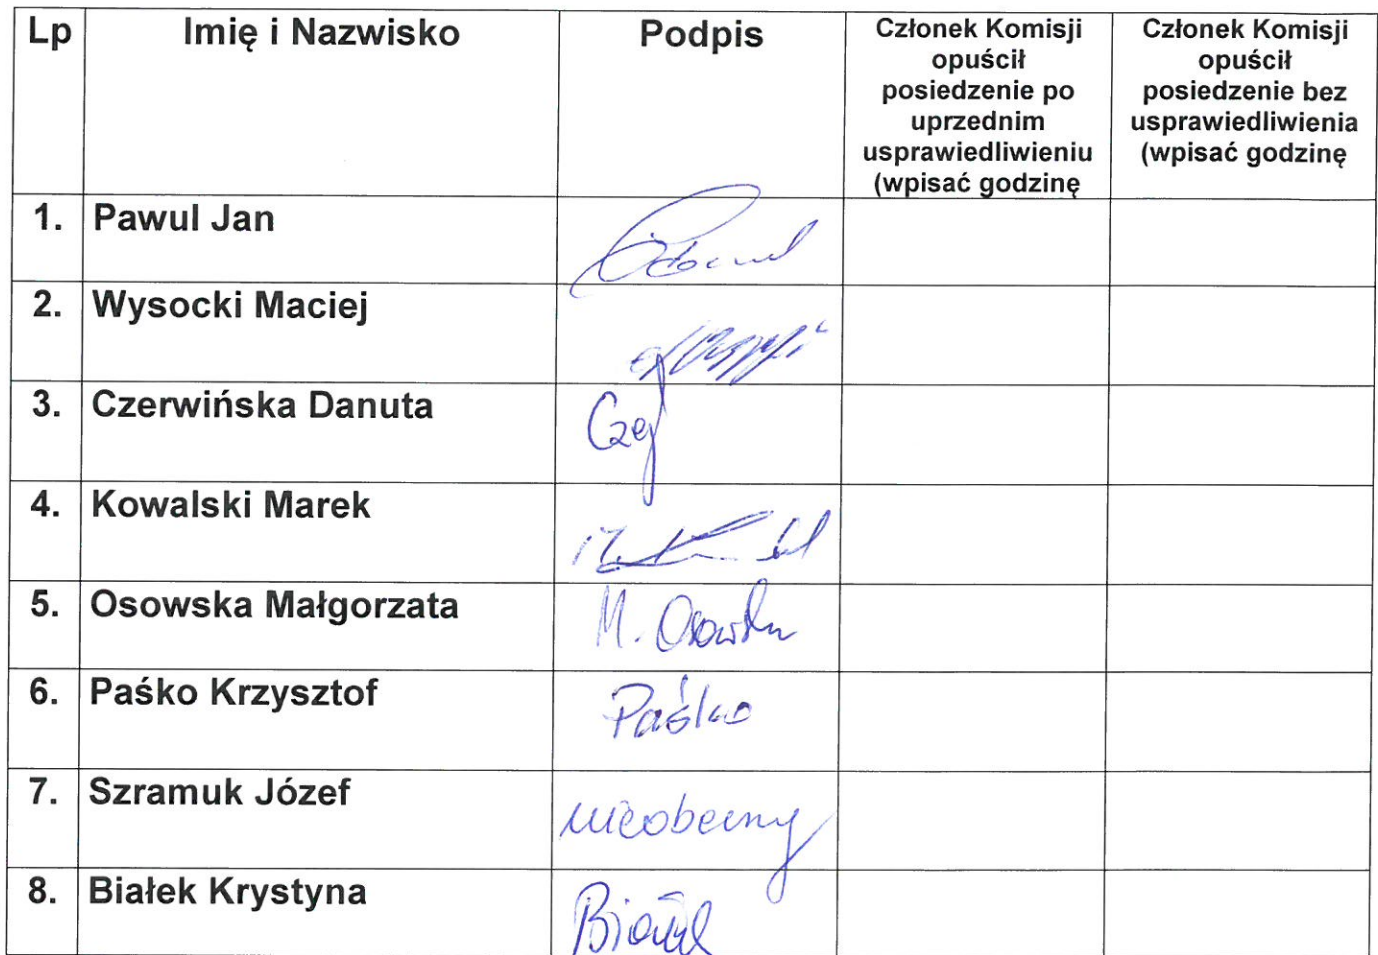 Lp Imię i Nazwisko Podpis Członek Komisji opuścił posiedzenie po uprzednim usprawiedliwieniu (wpisać godzinę Członek Komisji opuścił posiedzenie bez usprawiedliwienia (wpisać godzinę
1. Pawul Jan
2. Wysocki Maciej
3. Czerwińska Danuta
4. Kowalski Marek
5. Osowska Małgorzata M. Osowska
6. Paśko Krzysztof Paśko
7. Szramuk Józef nieobecny
8. Białek Krystyna